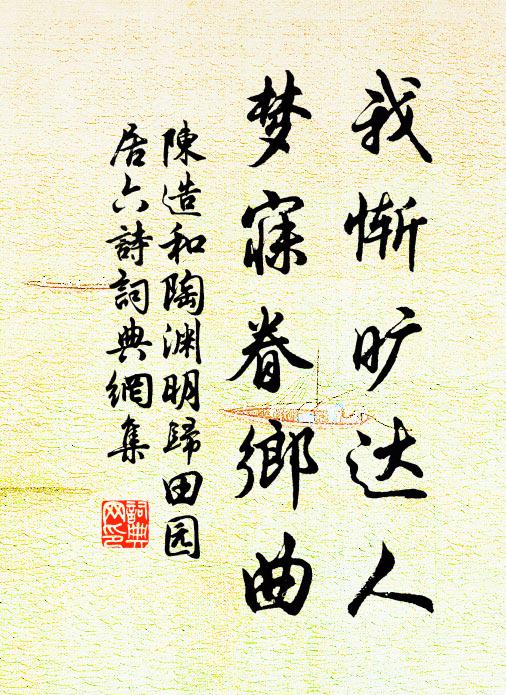 我惭旷达人
梦寐眷鄉曲
陳造和陶渊明歸田园
居六詩詞典網集
詞典
网印